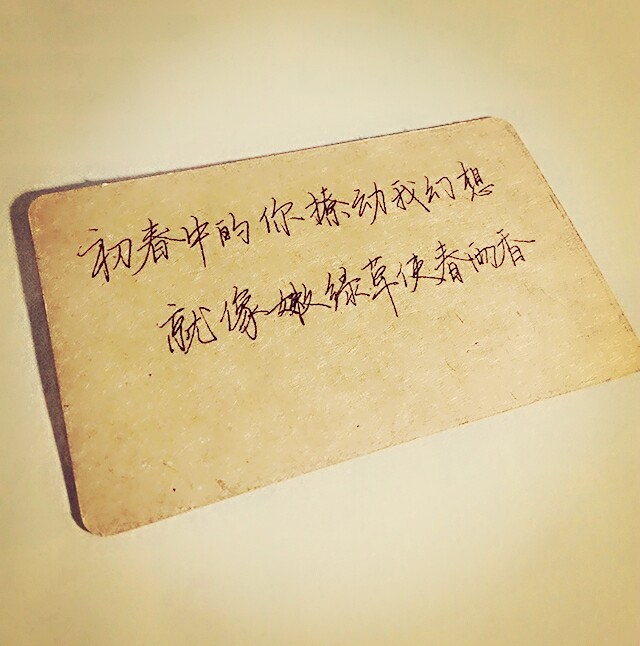 初春中的你撩动我幻想
就像嫩绿草使春雨香